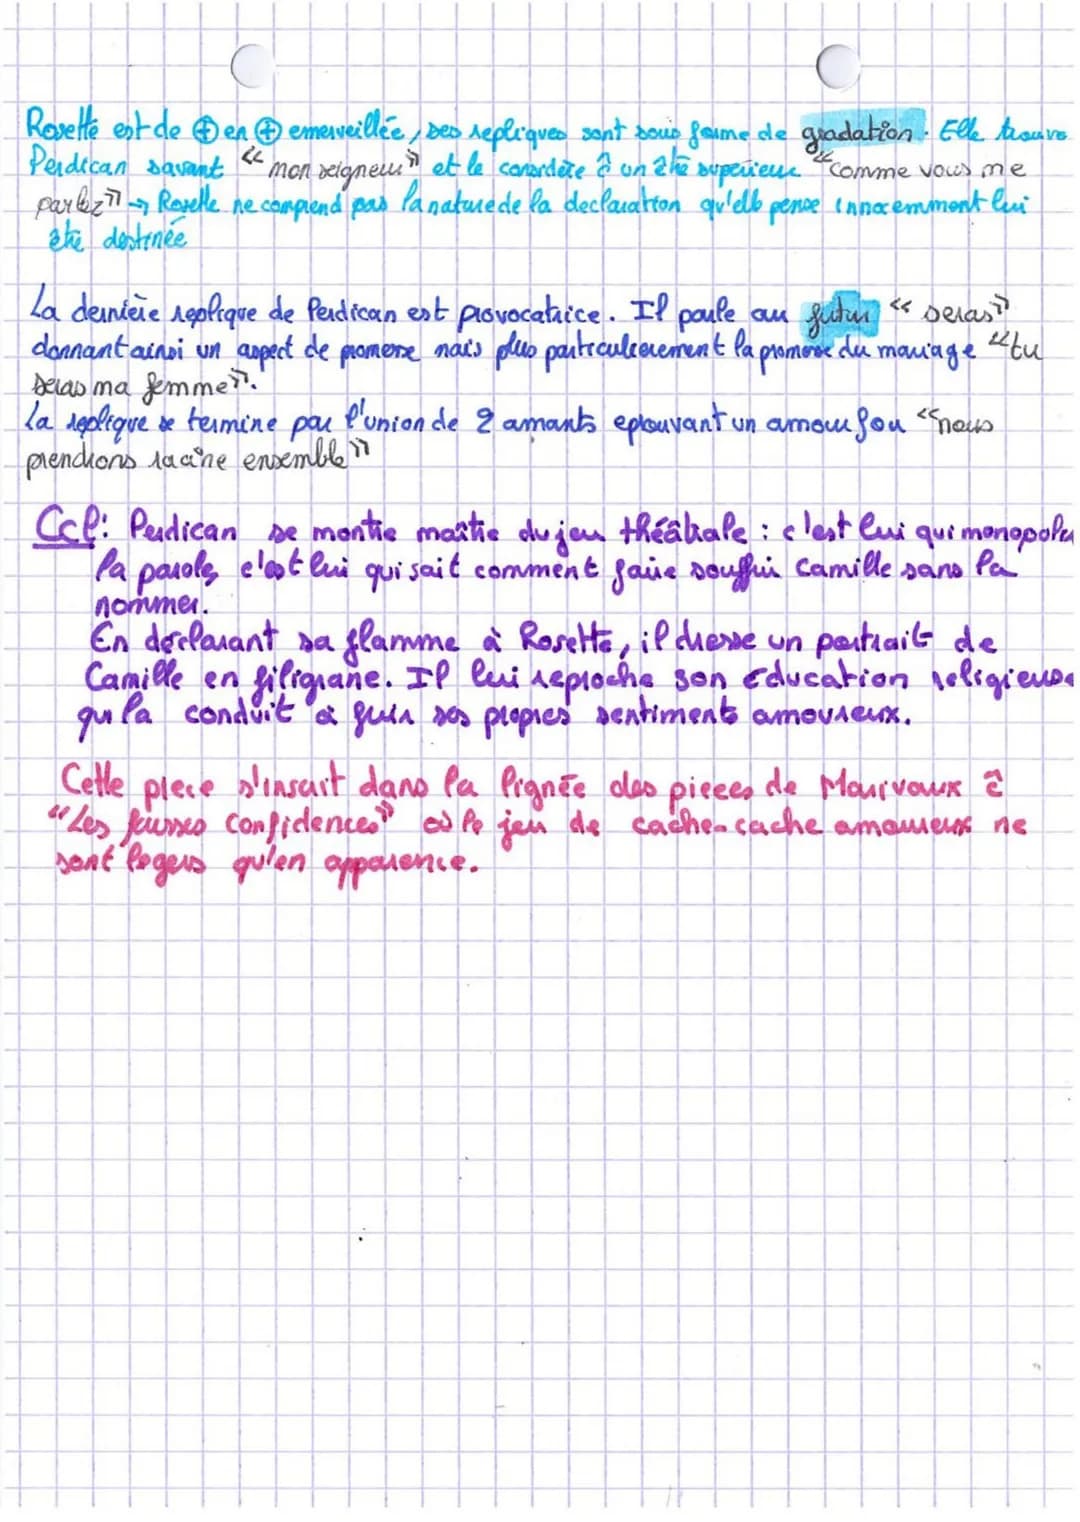 Rosette est de ⊕ en ⊕ emerveillée, ses repliques sont sous forme de gradation. Elle trouve
Perdican savant << mon seigneur >> et le considère ê un être superieur << comme vous me
parlez >> → Rosette ne comprend pas la nature de la declaration qu'elle pense innocemment lui
être destinée
La dernière replique de Perdican est provocatrice. Il parle au futur << seras >>
donnant ainsi un aspect de promesse mais plus particulierement la promesse du mariage << tu
seras ma femme >>.
La replique se termine par l'union de 2 amants eprouvant un amour fou << nous
prendrons racine ensemble >>
Ccl: Perdican se montre maître du jeu théâtrale : c'est lui qui monopoli
la parole, c'est lui qui sait comment faire souffrir Camille sans la
nommer.
En declarant sa flamme à Rosette, il dresse un portrait de
Camille en filigrane. Il lui reproche son education religieuse
qui la conduit à fuir ses propres sentiments amoureux.
Cette piece s'inscrit dans la lignée des pieces de Marivaux ê
"Les fausses Confidences" où le jeu de cache-cache amoureux ne
sont legers qu'en apparence.